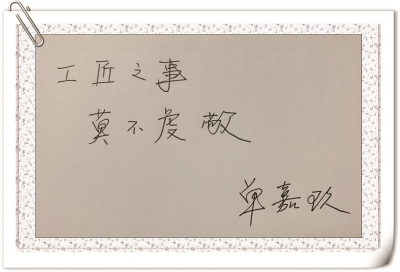 工匠之事
莫不虔敬
单嘉玖